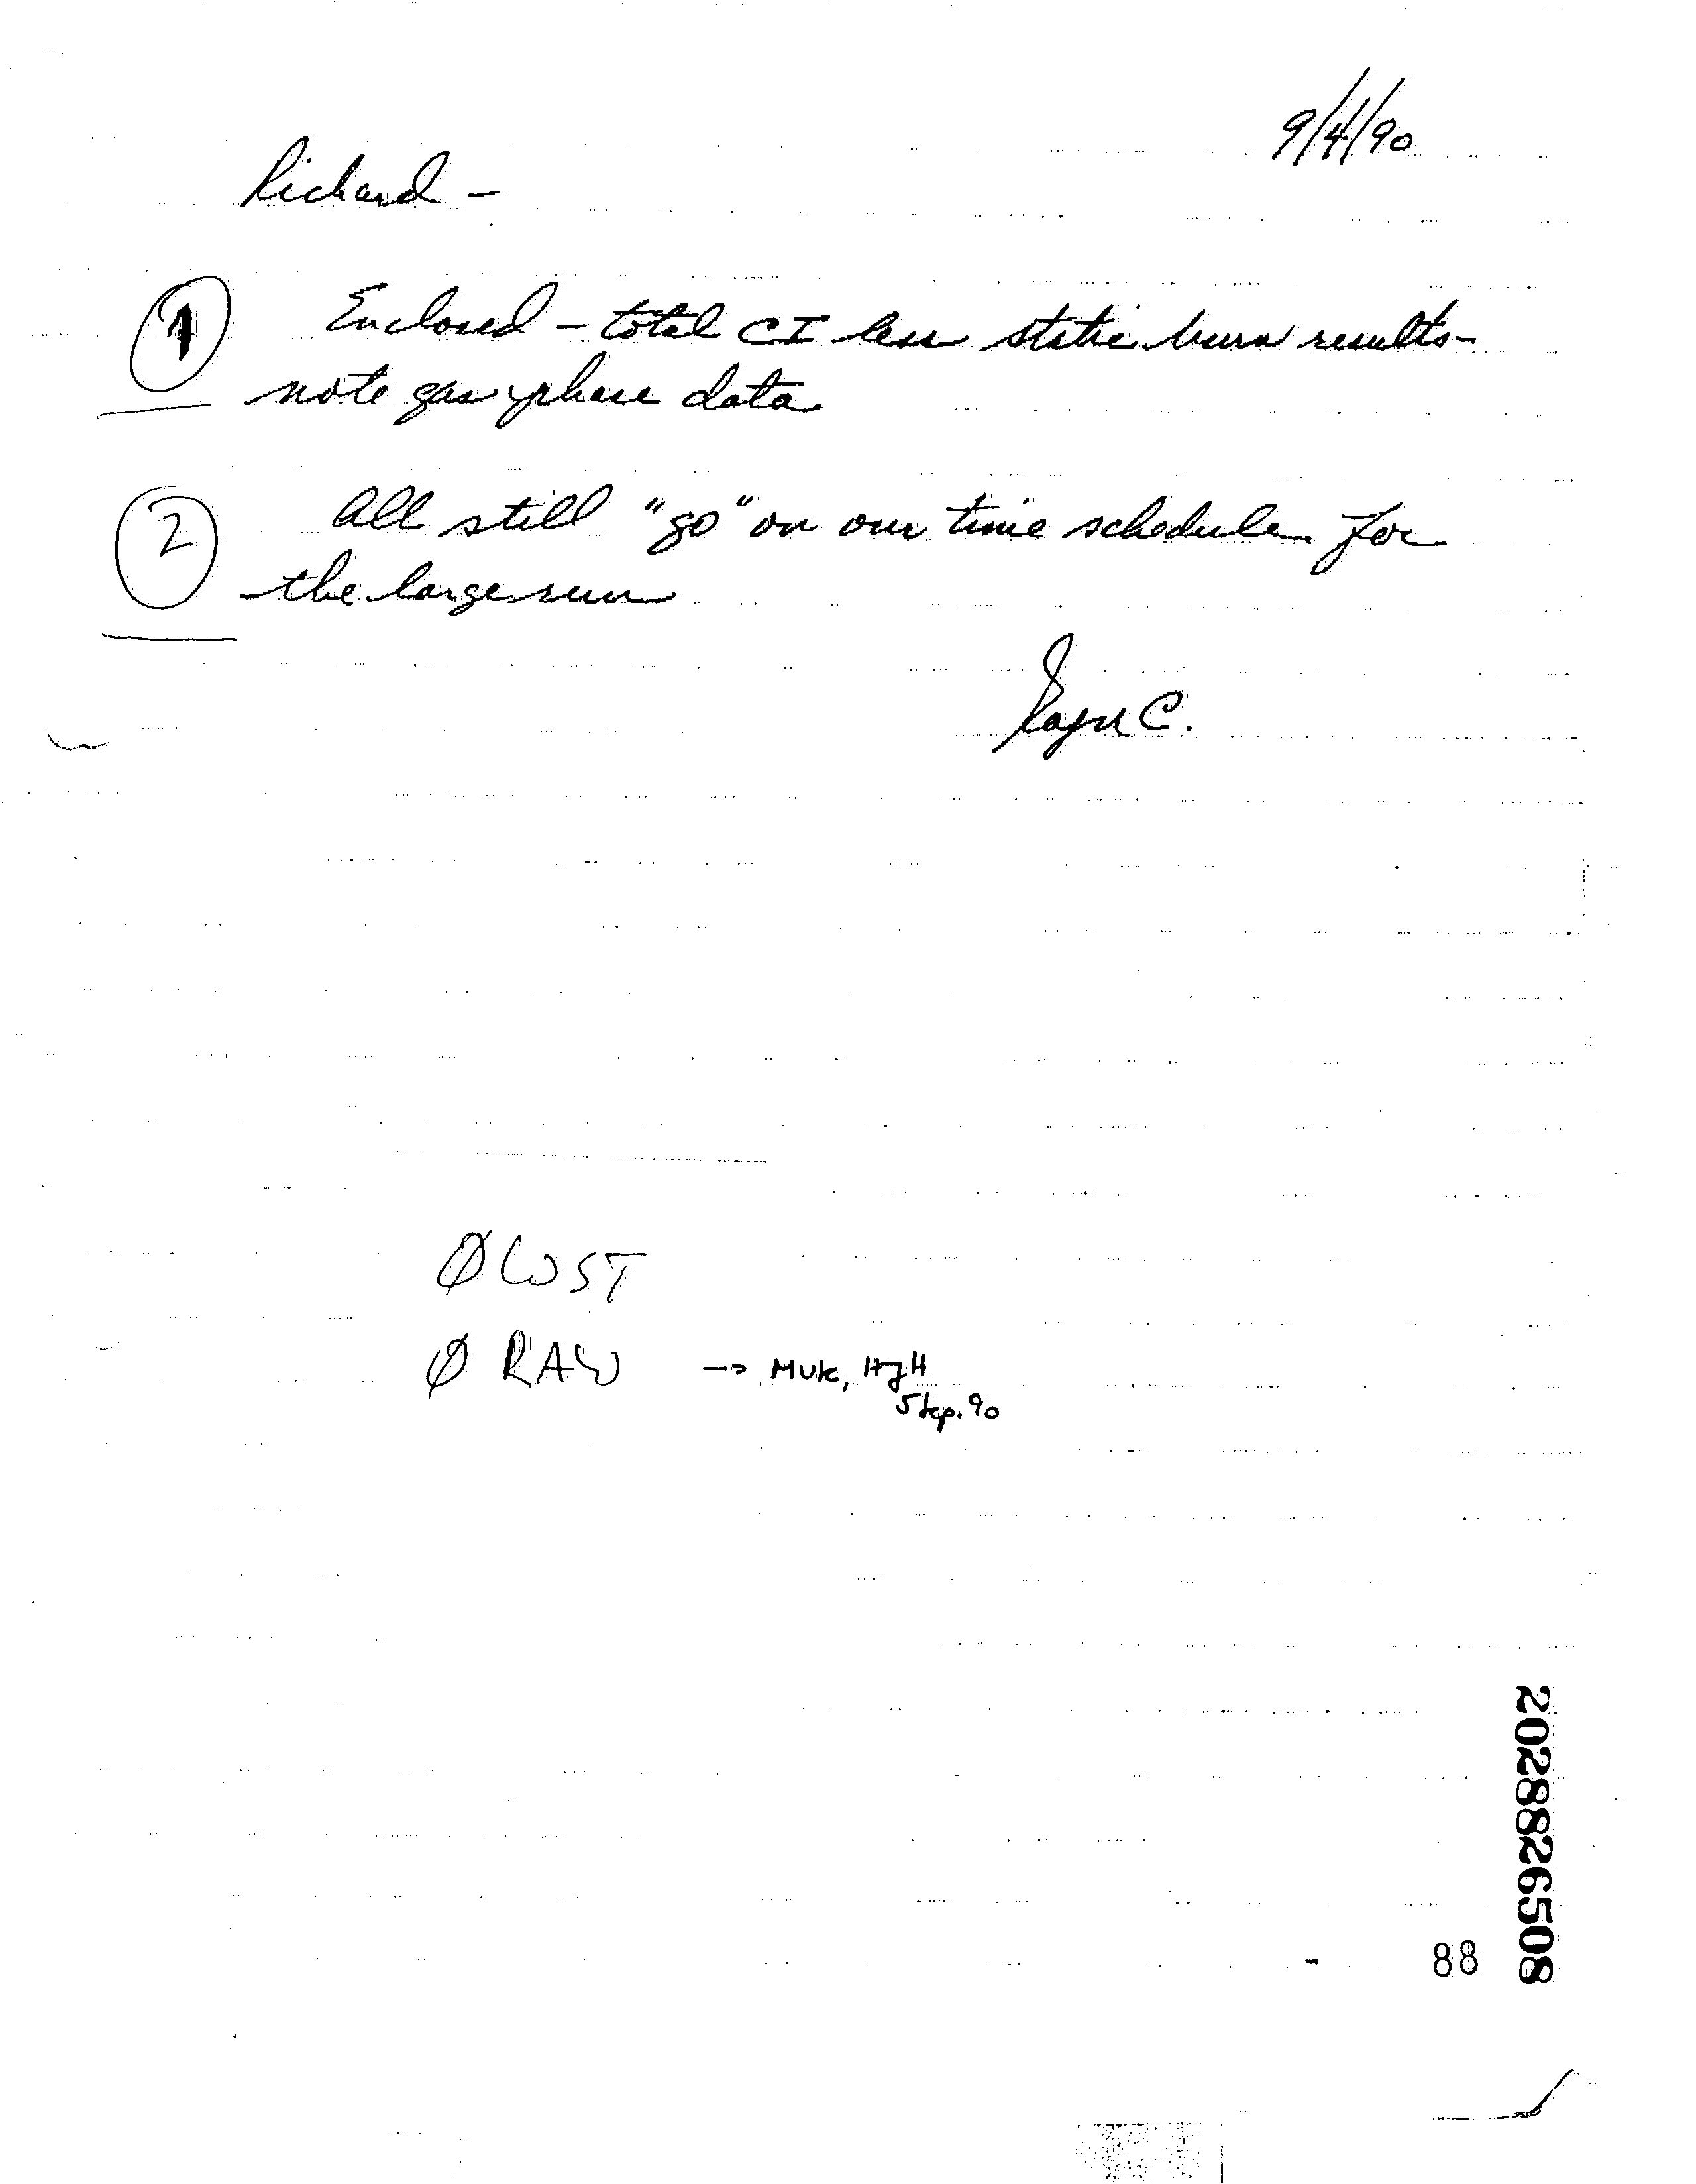 9/4/90
Richard -
1 Enclosed - total CI less static burn results -
note gas phase data
2 All still "go" on our time schedule for
the large run
Roger C.
Ø WST
Ø RAW → MUK, HJH
5 Sep. 90
88
2028826508